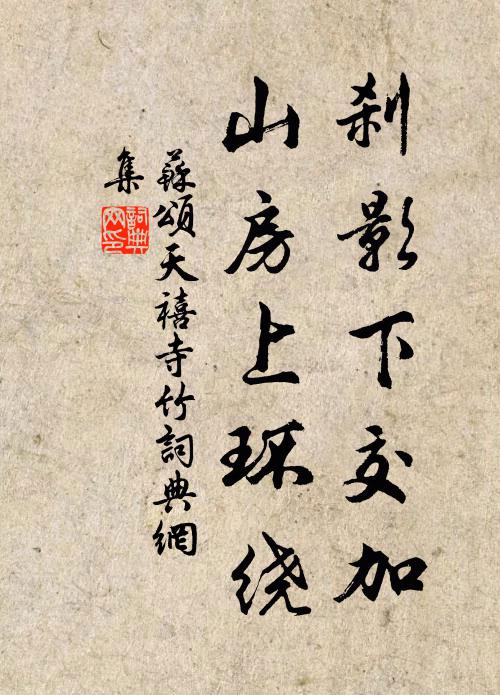 刹影下交加
山房上环绕
蘇頌天禧寺竹詞典網
集
詞典網印